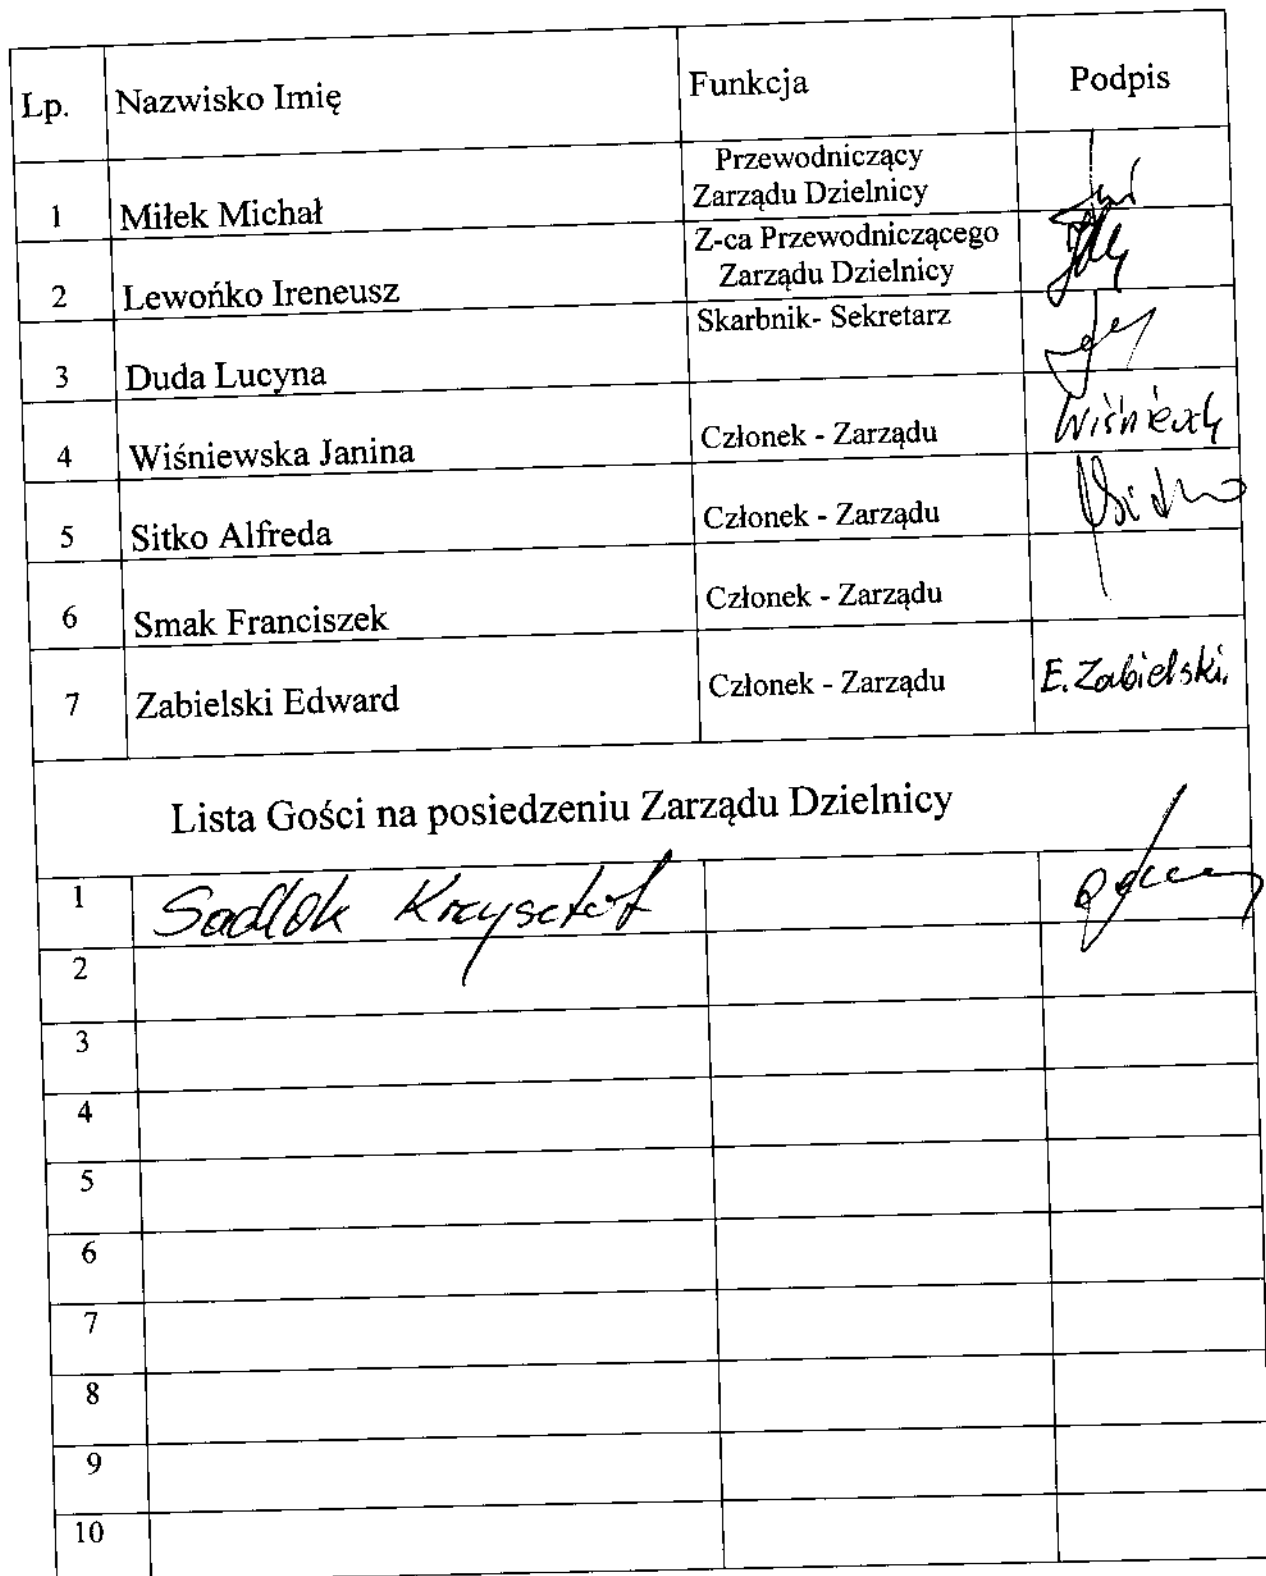 Lp. Nazwisko Imię Funkcja Podpis
1 Miłek Michał Przewodniczący
Zarządu Dzielnicy
2 Lewońko Ireneusz Z-ca Przewodniczącego
Zarządu Dzielnicy
3 Duda Lucyna Skarbnik- Sekretarz
4 Wiśniewska Janina Członek - Zarządu
5 Sitko Alfreda Członek - Zarządu
6 Smak Franciszek Członek - Zarządu
7 Zabielski Edward Członek - Zarządu E. Zabielski.
Lista Gości na posiedzeniu Zarządu Dzielnicy
1 Sadlok Krzysztof
2
3
4
5
6
7
8
9
10